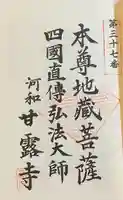 第三十七番
本尊地藏菩薩
四國直傳弘法大師
河和 甘露寺